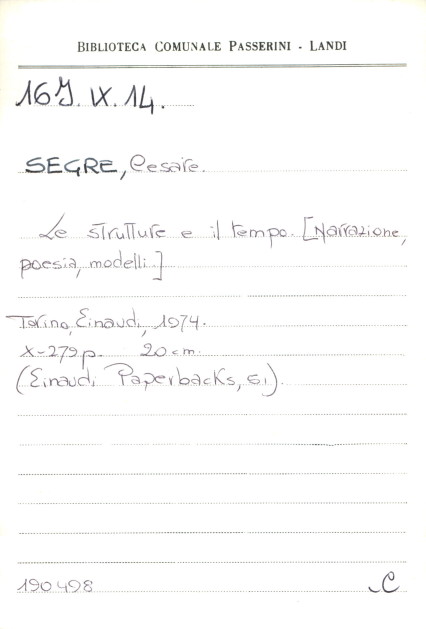 BIBLIOTECA COMUNALE PASSERINI - LANDI
16J. IX. 14.
SEGRE, Cesare.
Le strutture e il tempo. [Narrazione,
poesia, modelli.]
Torino, Einaudi, 1974.
X-279 p. 20 cm.
(Einaudi Paperbacks, 51).
190498
C